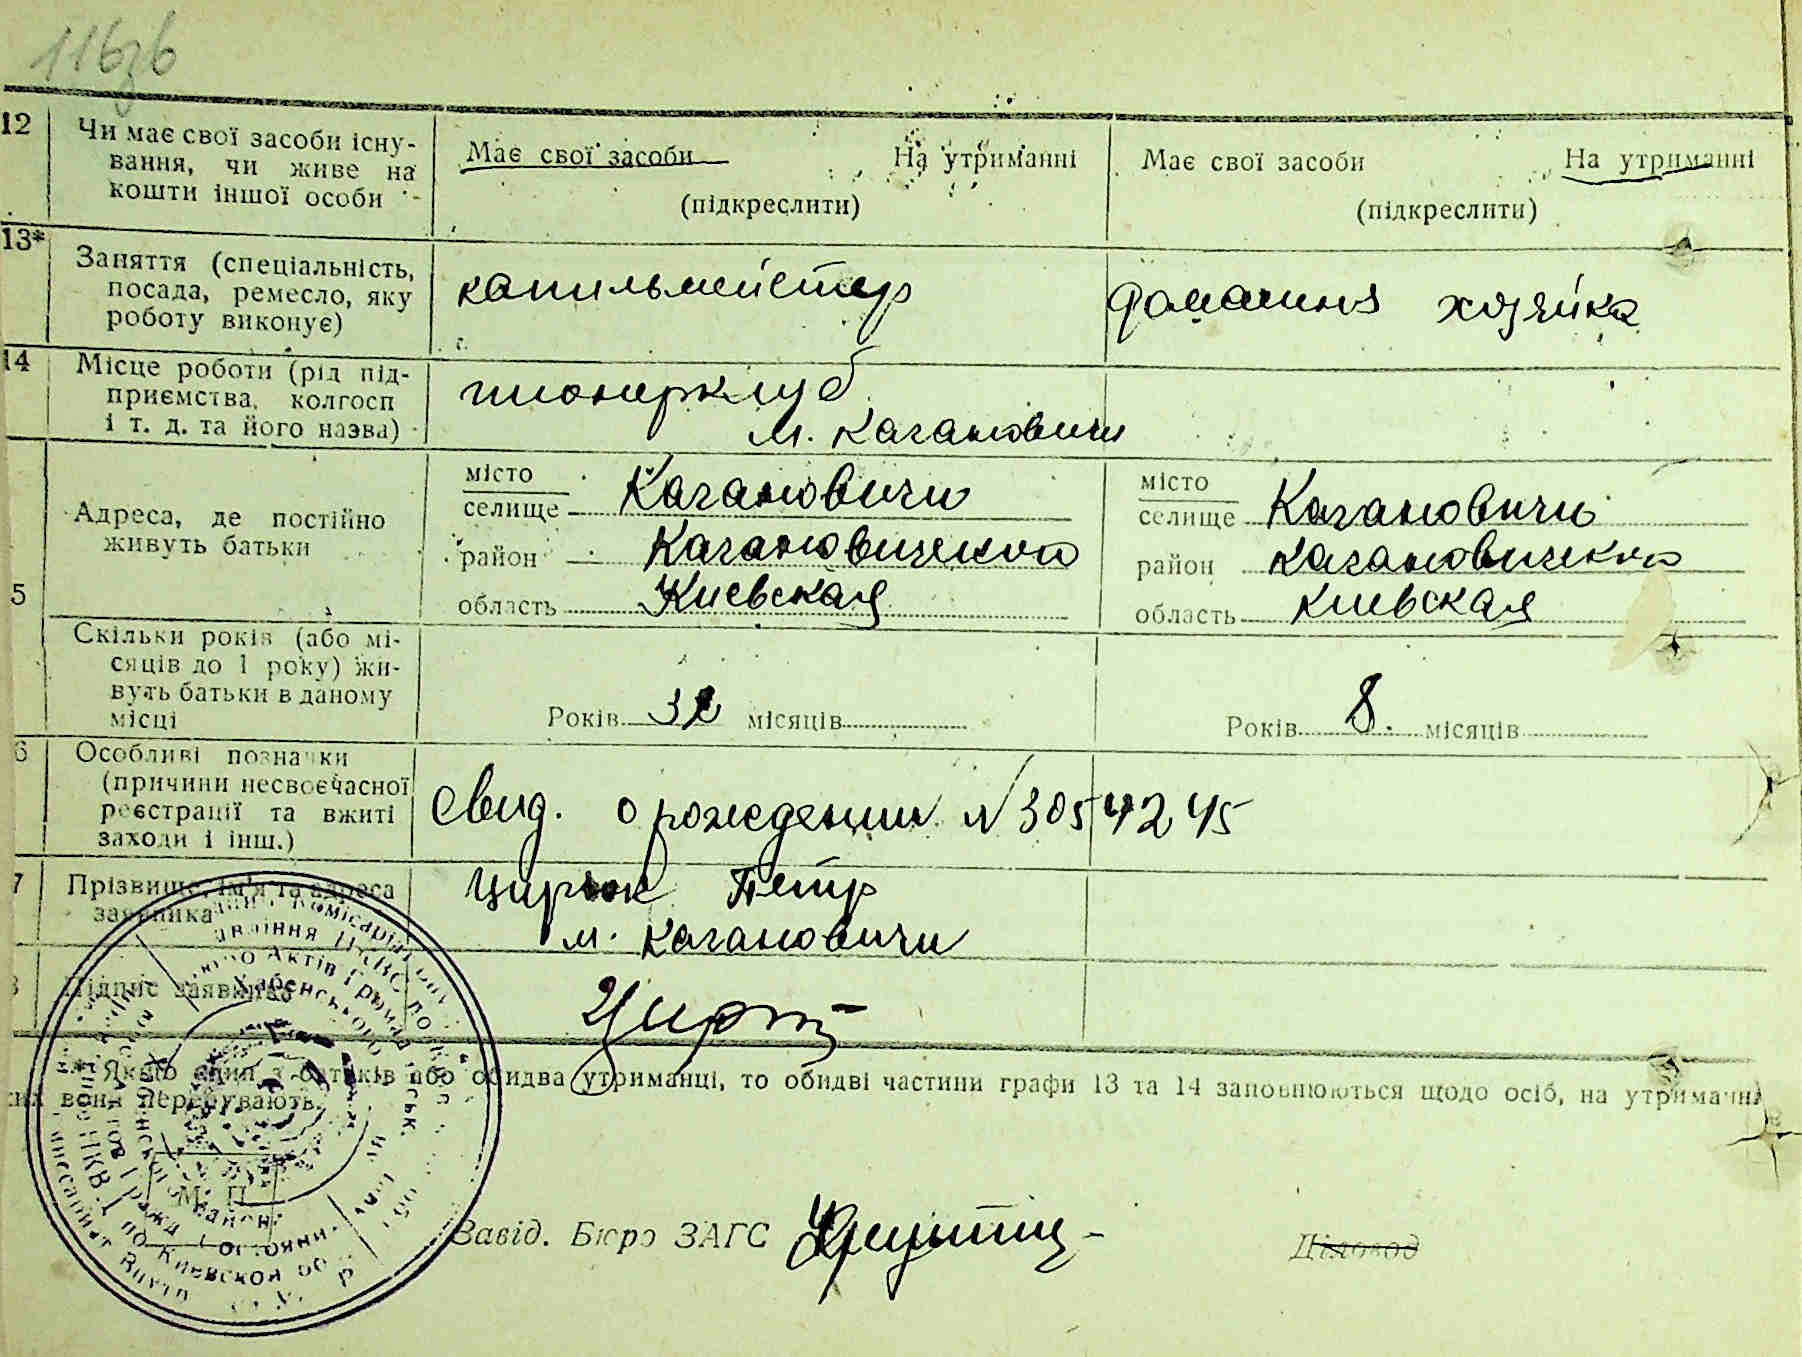 116зв
12 Чи має свої засоби існу-
вання, чи живе на
кошти іншої особи
Має свої засоби На утриманні
(підкреслити)
Має свої засоби На утриманні
(підкреслити)
13* Заняття (спеціальність,
посада, ремесло, яку
роботу виконує)
капильмейстер
домашня хозяйка
14 Місце роботи (рід під-
приємства, колгосп
і т. д. та його назва)
пионерклуб
м. Кагановичи
5 Адреса, де постійно
живуть батьки
місто
селище Кагановичи
район Кагановического
область Киевская
місто
селище Кагановичи
район Кагановического
область Киевская
Скільки років (або мі-
сяців до 1 року) жи-
вуть батьки в даному
місці
Років 32 місяців
Років 8. місяців
6 Особливі позначки
(причини несвоєчасної
реєстрації та вжиті
заходи і інш.)
Свид. о рождении N 3054245
7 Прізвище, ім'я та адреса
заявника
Цирюк Петр
м. Кагановичи
Підпис заявника
* Якщо один з батьків або обидва утриманці, то обидві частини графи 13 та 14 заповнюються щодо осіб, на утриманні
яких вони перебувають.
М. П.
Завід. Бюро ЗАГС
Діловод